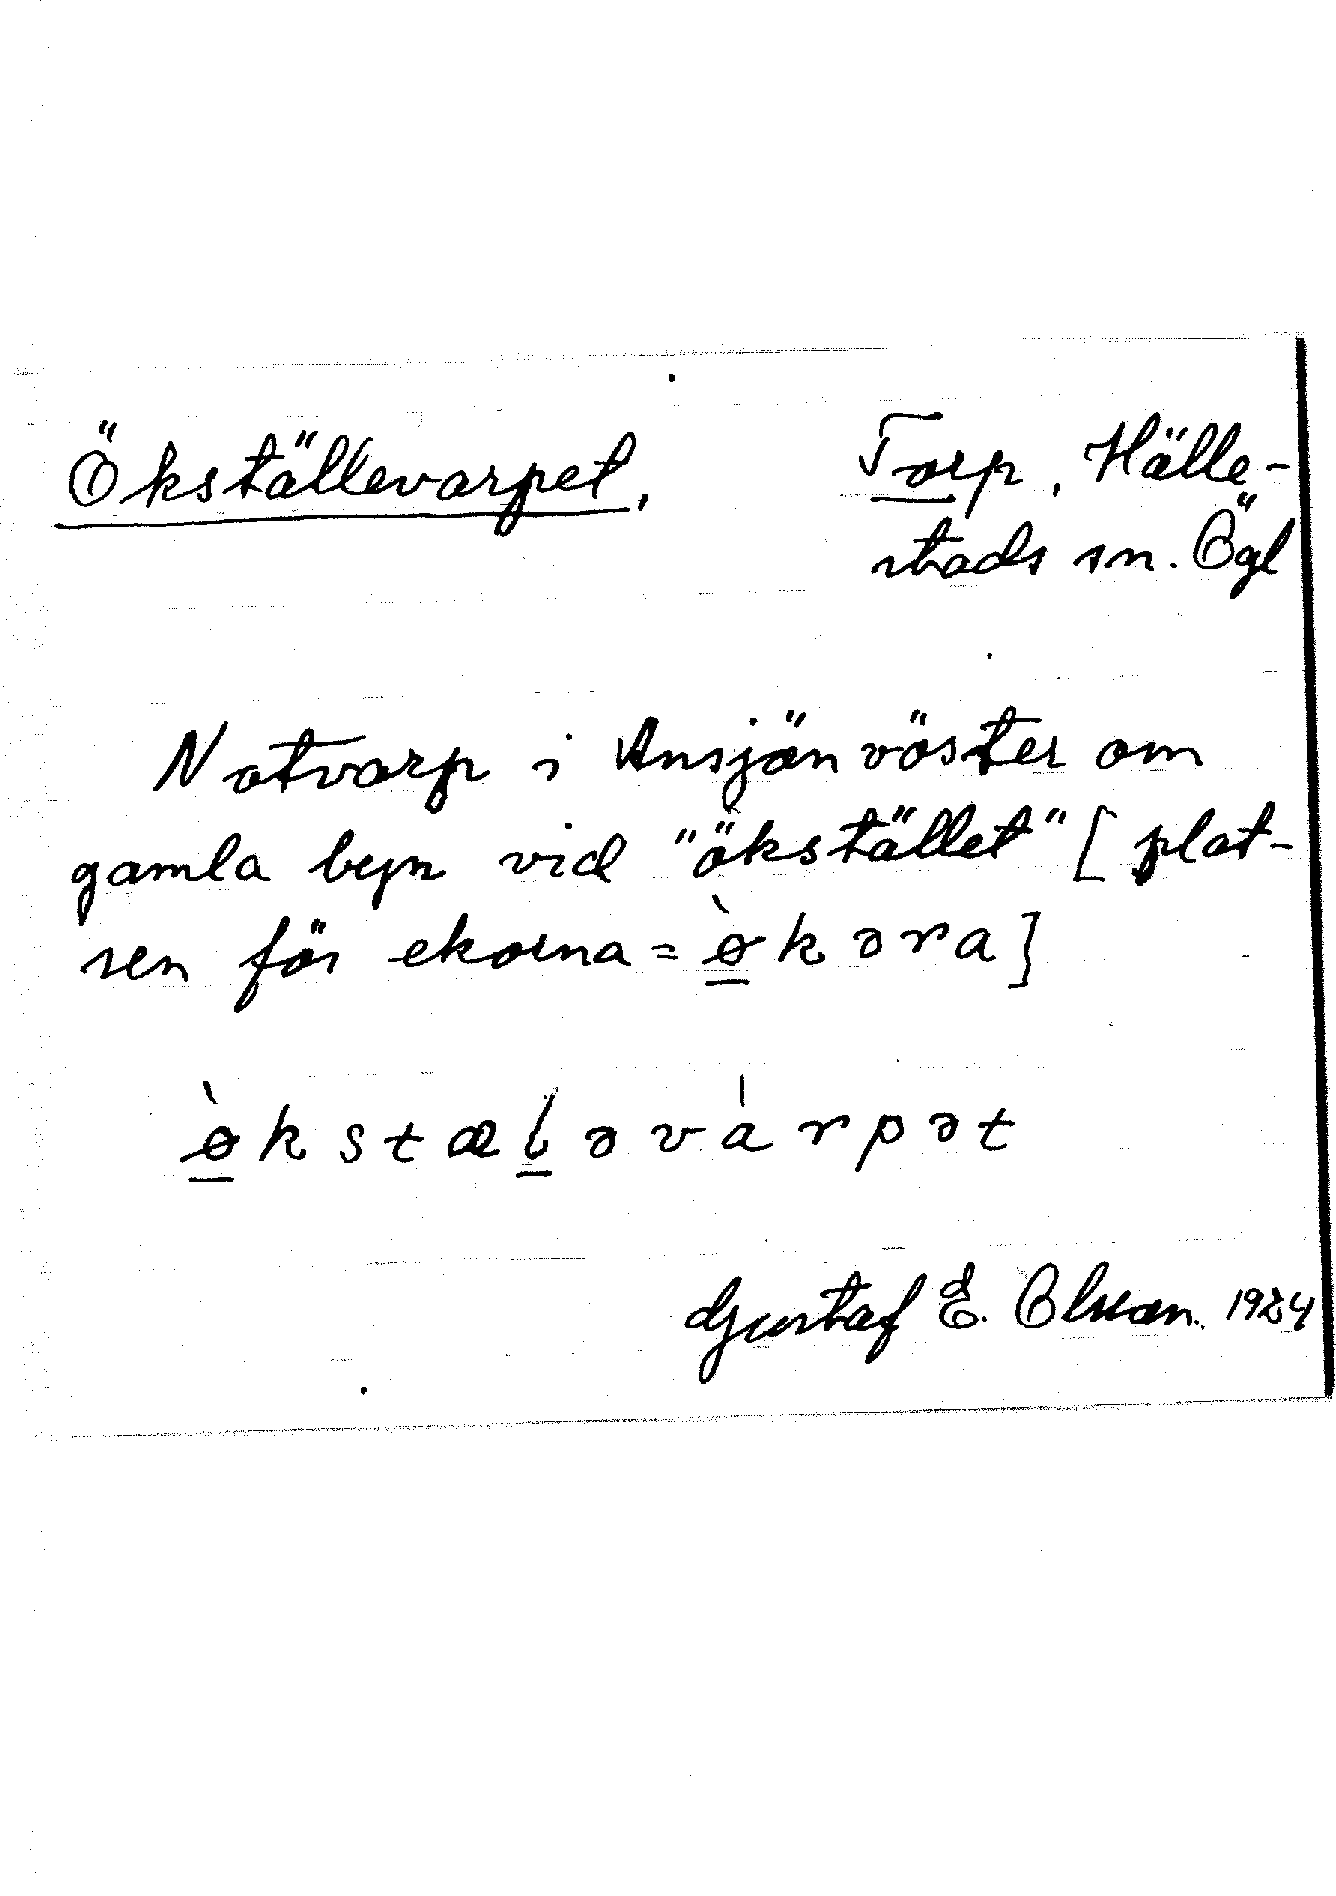 Ökställevarpet, Torp, Hälle-
stads sn. Ögl
Notvarp i Ansjön väster om
gamla byn vid "ökstället" [plat-
sen för ekorna = ø̀kəra]
ø̀kstælə̣vàrpət
Gustaf E. Olsson. 1924